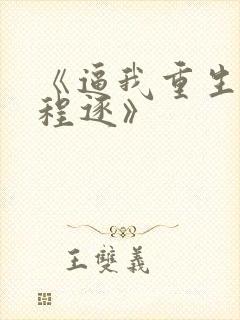 《逼我重生
程逐》
王雙義